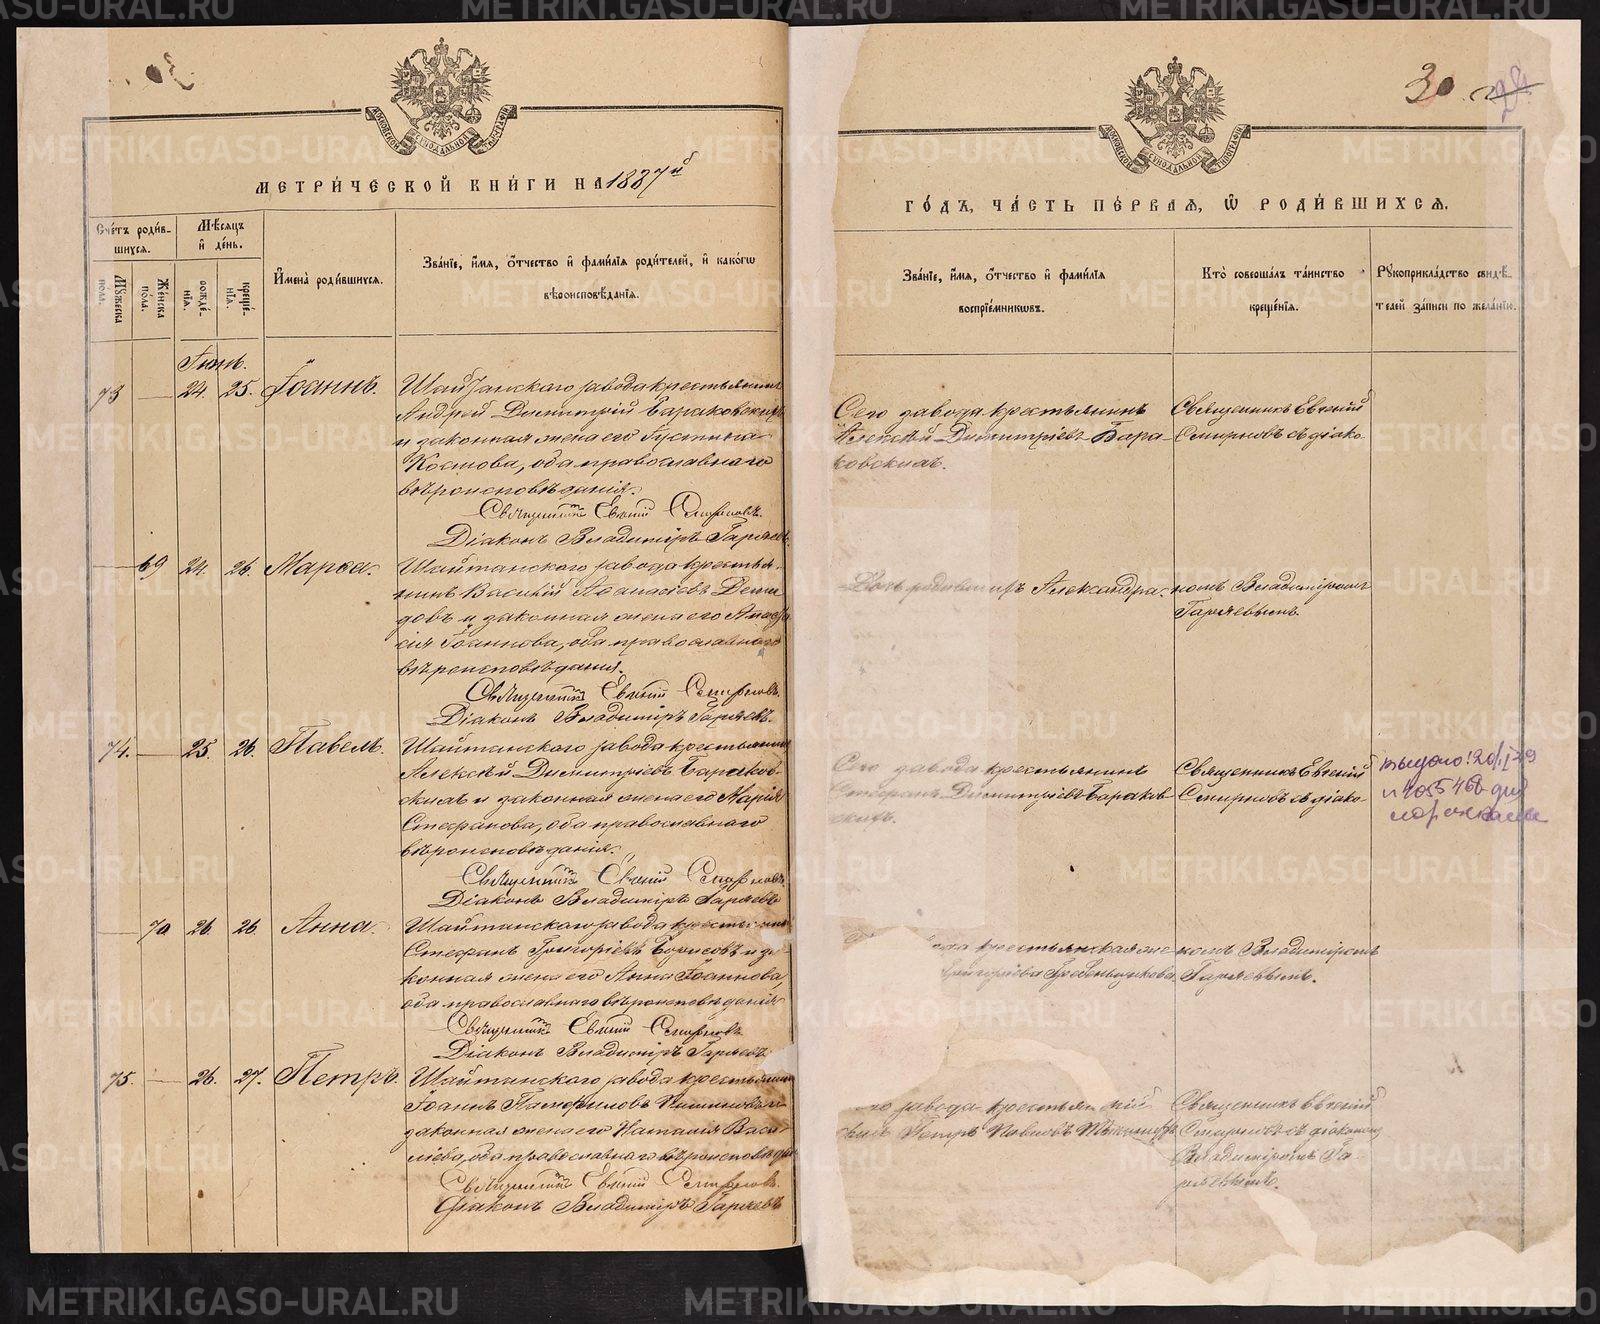 METRIKI.GASO-URAL.RU
30
МОСКОВСКОЙ СѴНОДАЛЬНОЙ ТИПОГРАФІИ
МЕТРИ́ЧЕСКОЙ КНИ́ГИ НА 1887й
Сче́тъ роди́в-
шихся.
Мѣ́сяцъ
и҆ де́нь.
Мꙋ́жеска
по́ла.
Же́нска
по́ла.
рожде́-
нїя.
креще́-
нїя.
И҆мена̀ роди́вшихся.
Зва́нїе, и҆́мя, ѻ҆́тчество и҆ фами́лїя роди́телей, и҆ како́гѡ
вѣроисповѣ́данїя.
Іюнь.
73 — 24. 25. Іоаннъ.
Шайтанскаго завода крестьянинъ
Андрей Димитрій Бараковскихъ
и законная жена его Іустина
, оба православнаго
вѣроисповѣданія.
Священникъ Евгеній Смирновъ.
Діаконъ Владиміръ Гаряевъ.
— 69 24. 26. Марѳа.
Шайтанскаго завода крестья-
нинъ Василій Аѳанасіевъ
довъ и законная жена его
сія Іоаннова, оба православнаго
вѣроисповѣданія.
Священникъ Евгеній Смирновъ.
Діаконъ Владиміръ Гаряевъ.
74. — 25. 26. Павелъ.
Шайтанскаго завода крестьянинъ
Алексѣй Димитріевъ Бараков-
скихъ и законная жена его Марія
Стефанова, оба православнаго
вѣроисповѣданія.
Священникъ Евгеній Смирновъ.
Діаконъ Владиміръ Гаряевъ
— 70 26. 26. Анна.
Шайтанскаго завода крестьянинъ
Стефанъ Григоріевъ Борисовъ и за-
конная жена его Анна Іоаннова,
оба православнаго вѣроисповѣданія
Священникъ Евгеній Смирновъ
Діаконъ Владиміръ Гаряевъ
75. — 26. 27. Петръ.
Шайтанскаго завода крестьянинъ
Іоаннъ Памфиловъ и
законная жена его Наталія Васи-
лева, оба православнаго вѣроисповѣда
Священникъ Евгеній Смирновъ.
Діаконъ Владиміръ Гаряевъ
30
МОСКОВСКОЙ СѴНОДАЛЬНОЙ ТИПОГРАФІИ
ГО́ДЪ, ЧА́СТЬ ПЕ́РВАЯ, Ѡ҆ РОДИ́ВШИХСЯ.
Зва́нїе, и҆́мя, ѻ҆́тчество и҆ фами́лїя
воспрїе́мникѡвъ.
Кто̀ соверша́лъ та́инство
креще́нїя.
Рꙋкоприкла́дство свидѣ́-
телей за́писи по жела́нїю.
Сего завода крестьянинъ
Алексѣй Димитріевъ Бара-
ковскихъ.
Священникъ Евгеній
Смирновъ съ діако-
Александра.
номъ Владиміромъ
Гаряевымъ.
Сего завода крестьянинъ
Стефанъ Димитріевъ Бараков-
скихъ.
Священникъ Евгеній
Смирновъ съ діако-
крестьянская
Григоріева Гребенщикова.
номъ Владиміромъ
Гаряевымъ.
завода крестьян
Петръ Павловъ
Священникъ Евгеній
Смирновъ съ діакономъ
Владиміромъ Га-
ряевымъ.